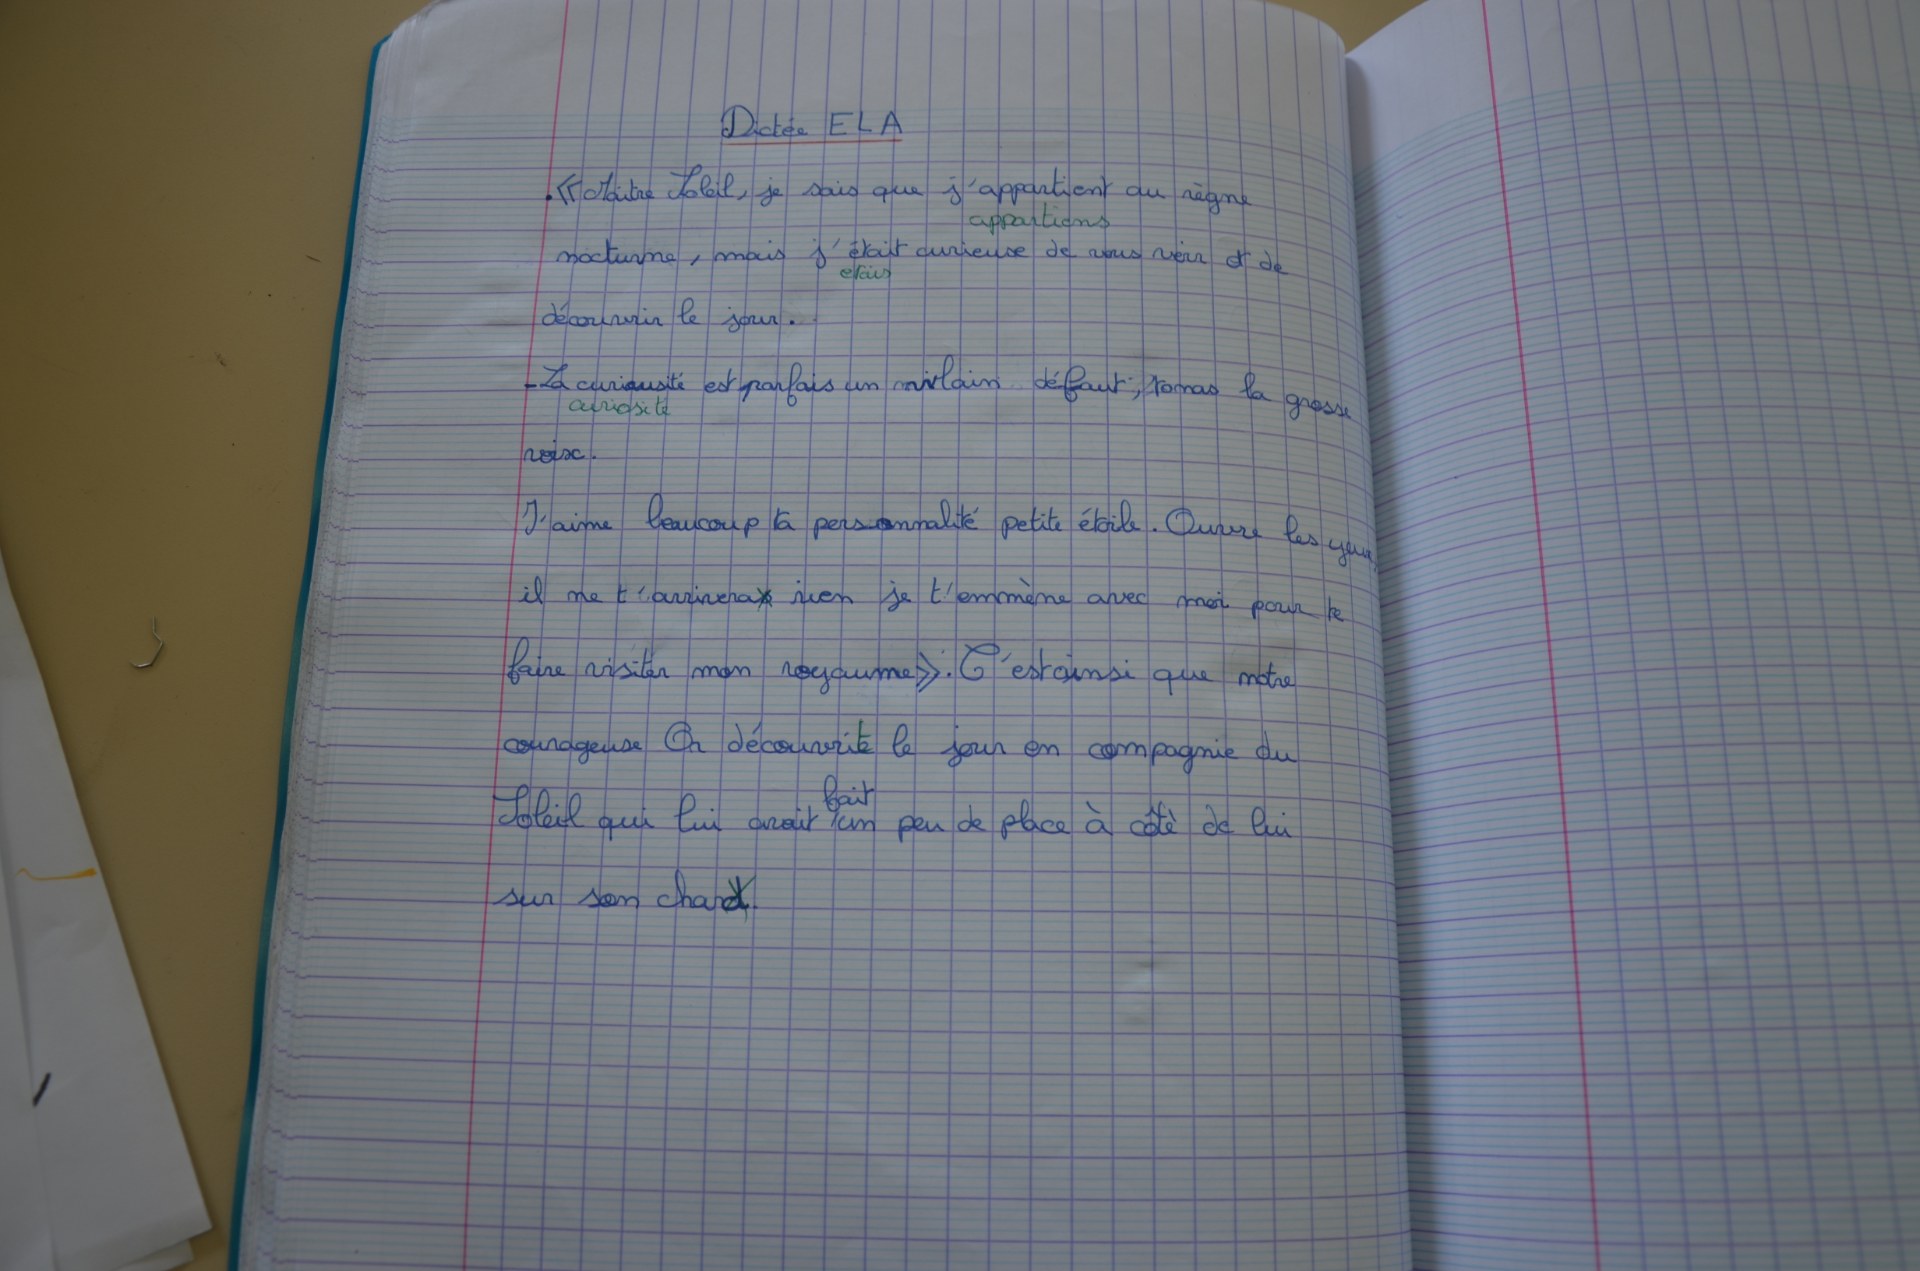 Dictée ELA
.« Maître Soleil, je sais que j'appartient au règne
appartiens
nocturne, mais j'était curieuse de vous voir et de
etais
découvrir le jour.
- La curiausité est parfais un vilain défaut, tonas la grosse
curiosité
voix.
J'aime beaucoup ta personnalité petite étoile. Ouvre les yeux,
il ne t'arrivera rien je t'emmène avec moi pour te
faire visiter mon royaume». C'est ainsi que notre
courageuse On découvrit le jour en compagnie du
fait
Soleil qui lui avait un peu de place à côtè de lui
sur son char.